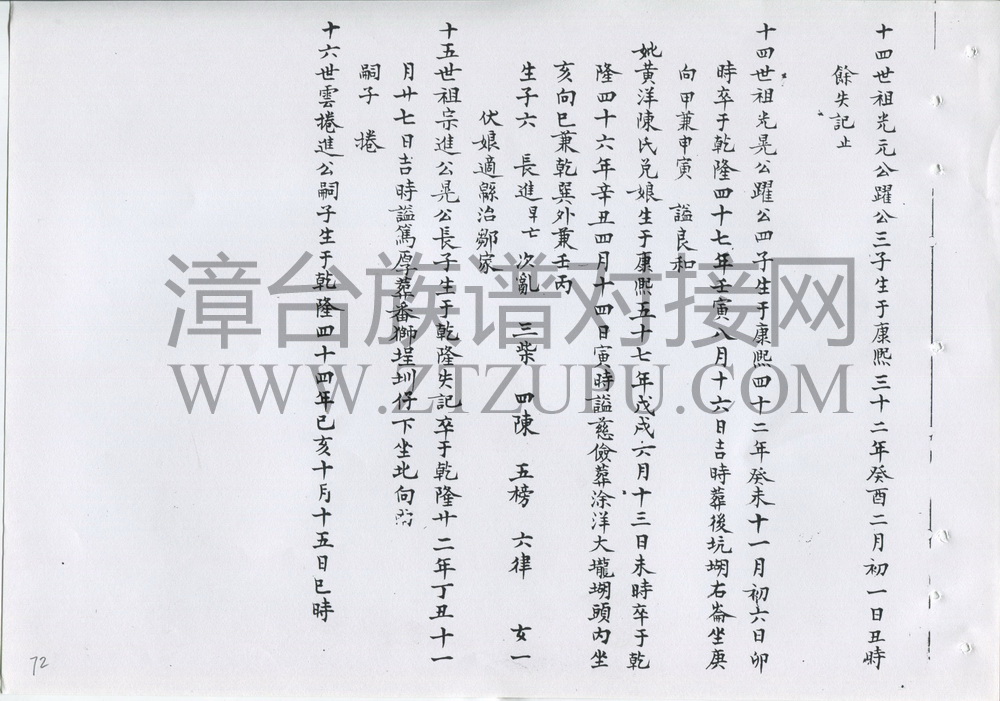 十四世祖光元公躍公三子生于康熙三十二年癸酉二月初一日丑時
餘失記止
十四世祖光晃公躍公四子生于康熙四十二年癸未十一月初六日卯
時卒于乾隆四十七年壬寅八月十六日吉時葬後坑坳右崙坐庚
向甲兼申寅 謚良和
妣黃洋陳氏兌娘生于康熙五十七年戊戌六月十三日未時卒于乾
隆四十六年辛丑四月十四日寅時謚慈儉葬涂洋大壠坳頭內坐
亥向巳兼乾巽外兼壬丙
生子六 長進早亡 次亂 三柴 四陳 五榜 六律 女一
伏娘適縣治鄒家
十五世祖宗進公晃公長子生于乾隆失記卒于乾隆廿二年丁丑十一
月廿七日吉時謚篤厚葬番獅埕圳仔下坐北向
嗣子 捲
十六世雲捲進公嗣子生于乾隆四十四年己亥十月十五日巳時
72
漳台族谱对接网
WWW.ZTZUPU.COM